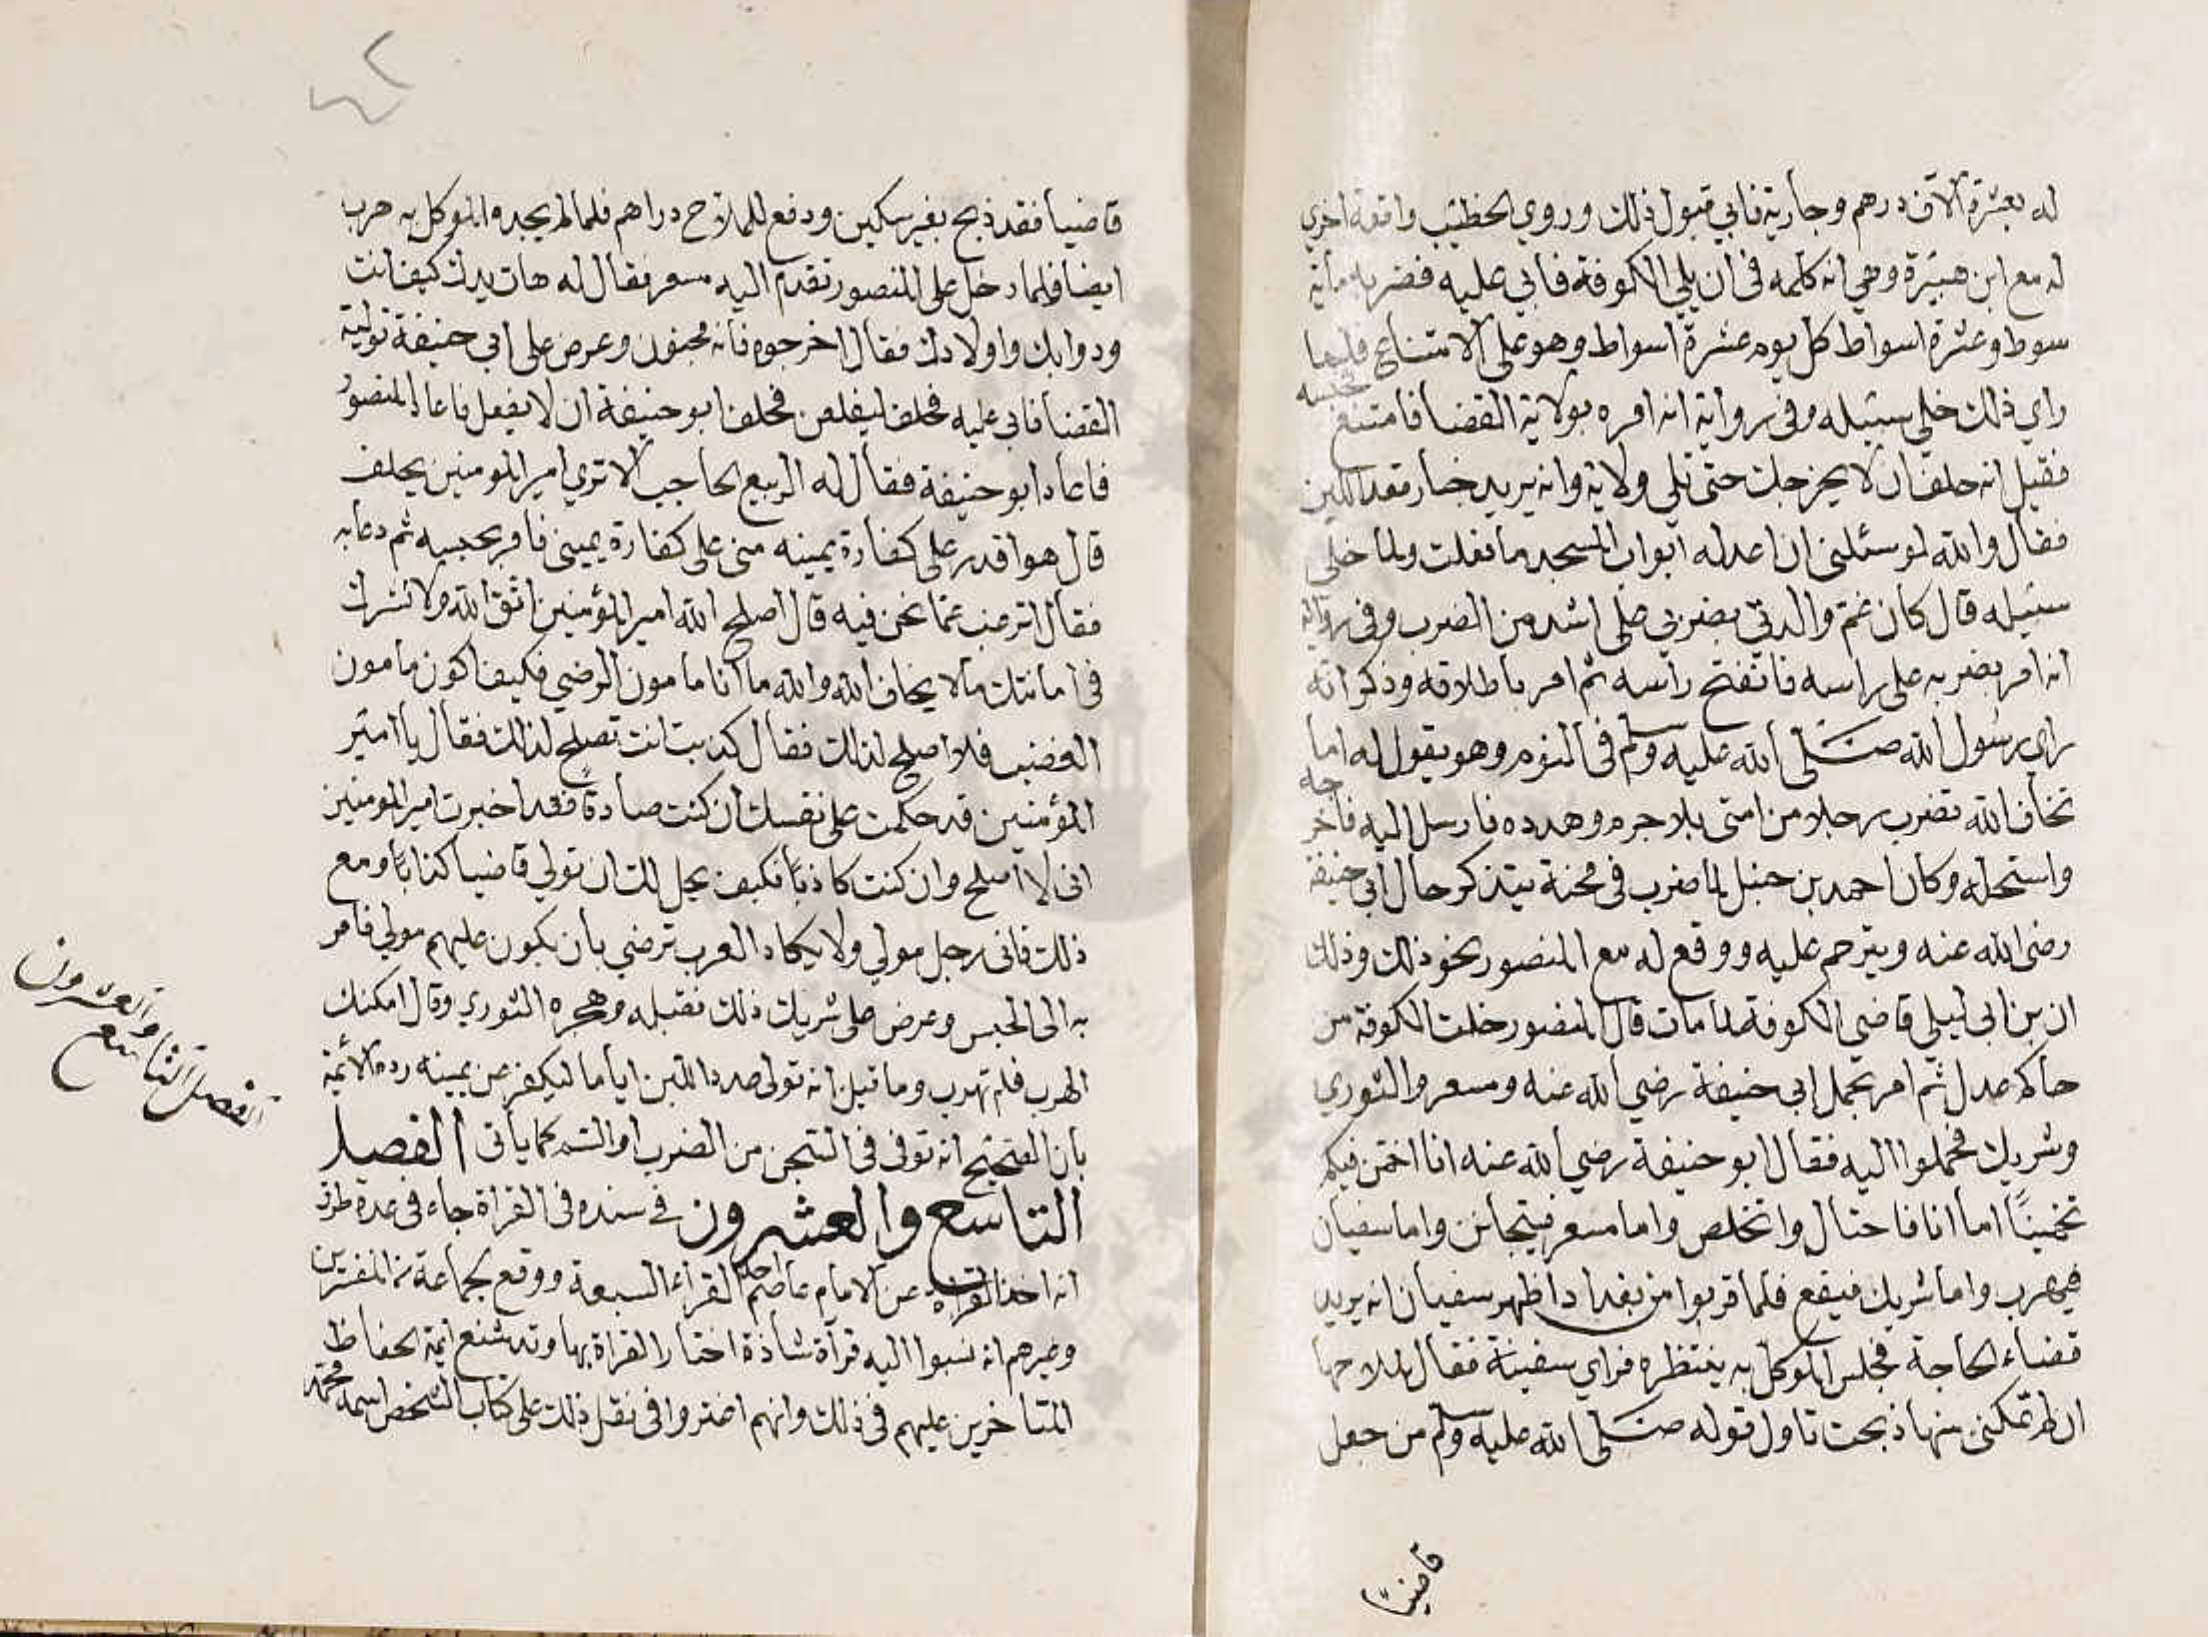 له بعشرة آلاف درهم وجارية فابي قبول ذلك وروي الخطيب واقعة اخري
له مع ابن هبيرة وهي انه كلمه في ان يلي الكوفة فابي عليه فضربه مأية
سوط وعشرة اسواط كل يوم عشرة اسواط وهو على الامتناع فلما
راي ذلك خلي سبيله وفي رواية انه امره بولاية القضا فامتنع فحبسه
فقيل انه حلف ان لا يخرجك حتى تلي ولاية وانه يريد خيار تعد اللبن
فقال والله لو سئلني ان اعد له ابواب المسجد ما فعلت ولما خلي
سبيله قال كان غم والدتي بضربي علي اشد من الضرب وفي رواية
انه امر بضربه على راسه فانفتح رأسه ثم امر باطلاقه وذكر انه
راي رسول الله صلى الله عليه وسلم في النوم وهو يقول له اما
تخاف الله تضرب رجلا من امتي بلا جرم وهدده فارسل اليه فاخرجه
واستحله وكان احمد بن حنبل لما ضرب في محنة يتذكر حال ابي حنيفة
رضي الله عنه ويترحم عليه ووقع له مع المنصور نحو ذلك وذلك
ان بن ابي ليلي قاضي الكوفة لما مات قال المنصور خلت الكوفة من
حاكم عدل ثم امر بحمل ابي حنيفة رضي الله عنه ومسعر والثوري
وشريك فحملوا اليه فقال ابو حنيفة رضي الله عنه انا اخمن فيكم
تخمينًا اما انا فاحتال واتخلص واما مسعر فيتجانن واما سفيان
فيهرب واما شريك فيقع فلما قربوا من بغداد اظهر سفيان انه يريد
قضاء الحاجة فجلس الموكل به ينتظره فراي سفينة فقال لملاحها
ان لم تمكني منها ذبحت تاول قوله صلى الله عليه وسلم من جعل
قاضيًا
قاضيا فقد ذبح بغير سكين ودفع للملاح دراهم فلما لم يجده الموكل به هرب
ايضا فلما دخل على المنصور تقدم اليه مسعر فقال له هات يدك كيف انت
ودوابك واولادك فقال اخرجوه فانه مجنون وعرض على ابي حنيفة تولية
القضا فابي عليه فحلف ليفلعن فحلف ابو حنيفة ان لا يفعل فاعاد المنصور
فاعاد ابو حنيفة فقال له الربيع الحاجب الا تري امير المومنين يحلف
قال هو اقدر على كفارة يمينه مني على كفارة يميني فامر بحبسه ثم دعا به
فقال اترغب عما نحن فيه قال اصلح الله امير المؤمنين اتق الله ولا تشرك
في امانتك ما لا يخاف الله والله ما انا مامون الرضي فكيف اكون مامون
الغضب فلا اصلح لذلك فقال كذبت انت تصلح لذلك فقال يا امير
المؤمنين قد حكمت على نفسك ان كنت صادقا فقد اخبرت امير المومنين
اني لا اصلح وان كنت كاذبًا فكيف يحل لك ان تولي قاضيا كذابًا ومع
ذلك فاني رجل مولي ولا يكاد العرب ترضي بان يكون عليهم مولي فامر
به الى الحبس وعرض على شريك ذلك فقبله وهجره الثوري وقال امكنك
الهرب فلم تهرب وما قيل انه تولى عد اللبن اياما ليكفر عن يمينه رده الائمة
بان الصحيح انه توفي في السجن من الضرب او السم كما يأتي الفصل
التاسع والعشرون في سنده في القراة جاء في عدة طرق
انه اخذ القراة عن الامام عاصم احد القراء السبعة ووقع لجماعة من المفسرين
وغيرهم انه نسبوا اليه قرآة شاذة اختار القراة بها وقد شنع ايمة الحفاظ
المتاخرين عليهم في ذلك وانهم اغتروا في نقل ذلك على كتاب الشخص اسمه محمد
الفصل التاسع والعشرون